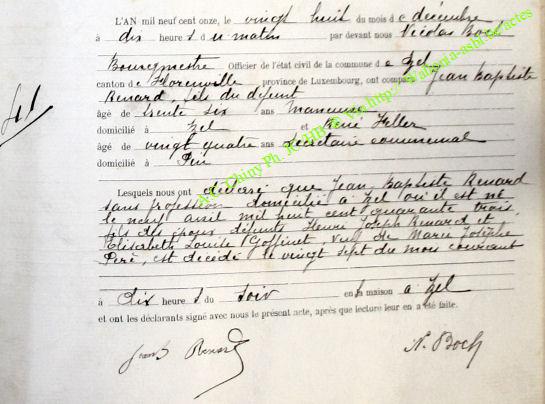 L'AN mil neuf cent onze, le vingt huit du mois de décembre
à dix heures du matin par devant nous Nicolas Boch
Bourgmestre Officier de l'état civil de la commune de Izel
canton de Florenville province de Luxembourg, ont comparu Jean Baptiste
Renard, fils du défunt
âgé de trente six ans Manoeuvre
domicilié à Izel et René Heller
âgé de vingt quatre ans secrétaire communal
domicilié à Pin
Izel
Lesquels nous ont déclaré que Jean Baptiste Renard
sans profession domicilié à Izel où il est né
le neuf avril mil huit cent quarante trois
fils des époux défunts Henri Joseph Renard et
Elisabeth Louise Goffinet, veuf de Marie Josèphe
Peré, est décédé le vingt sept du mois courant
à dix heures du soir en sa maison à Izel
et ont les déclarants signé avec nous le présent acte, après que lecture leur en a été faite.
Jean B Renard
N. Boch